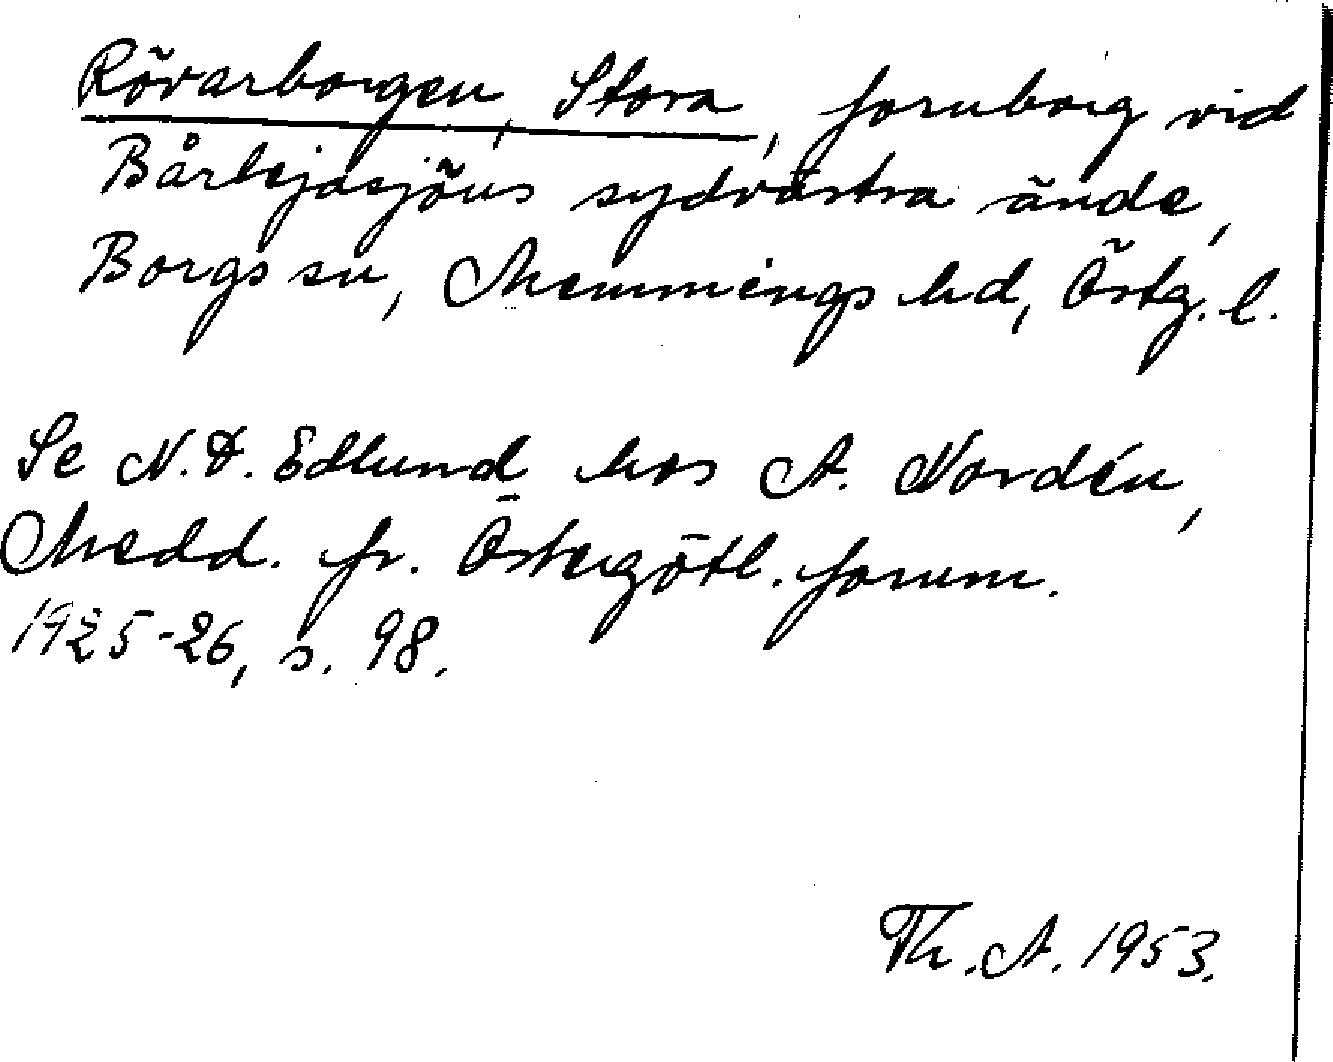 Rövarborgen, Stora, fornborg vid
Bårbejdasjöns sydvästra ände,
Borgs sn, Memmings hd, Östg. l.
Se N. D. Edlund hos A. Nordén,
Medd. fr. Östergötl. fornm.
1925-26, s. 98.
Th. A. 1953.